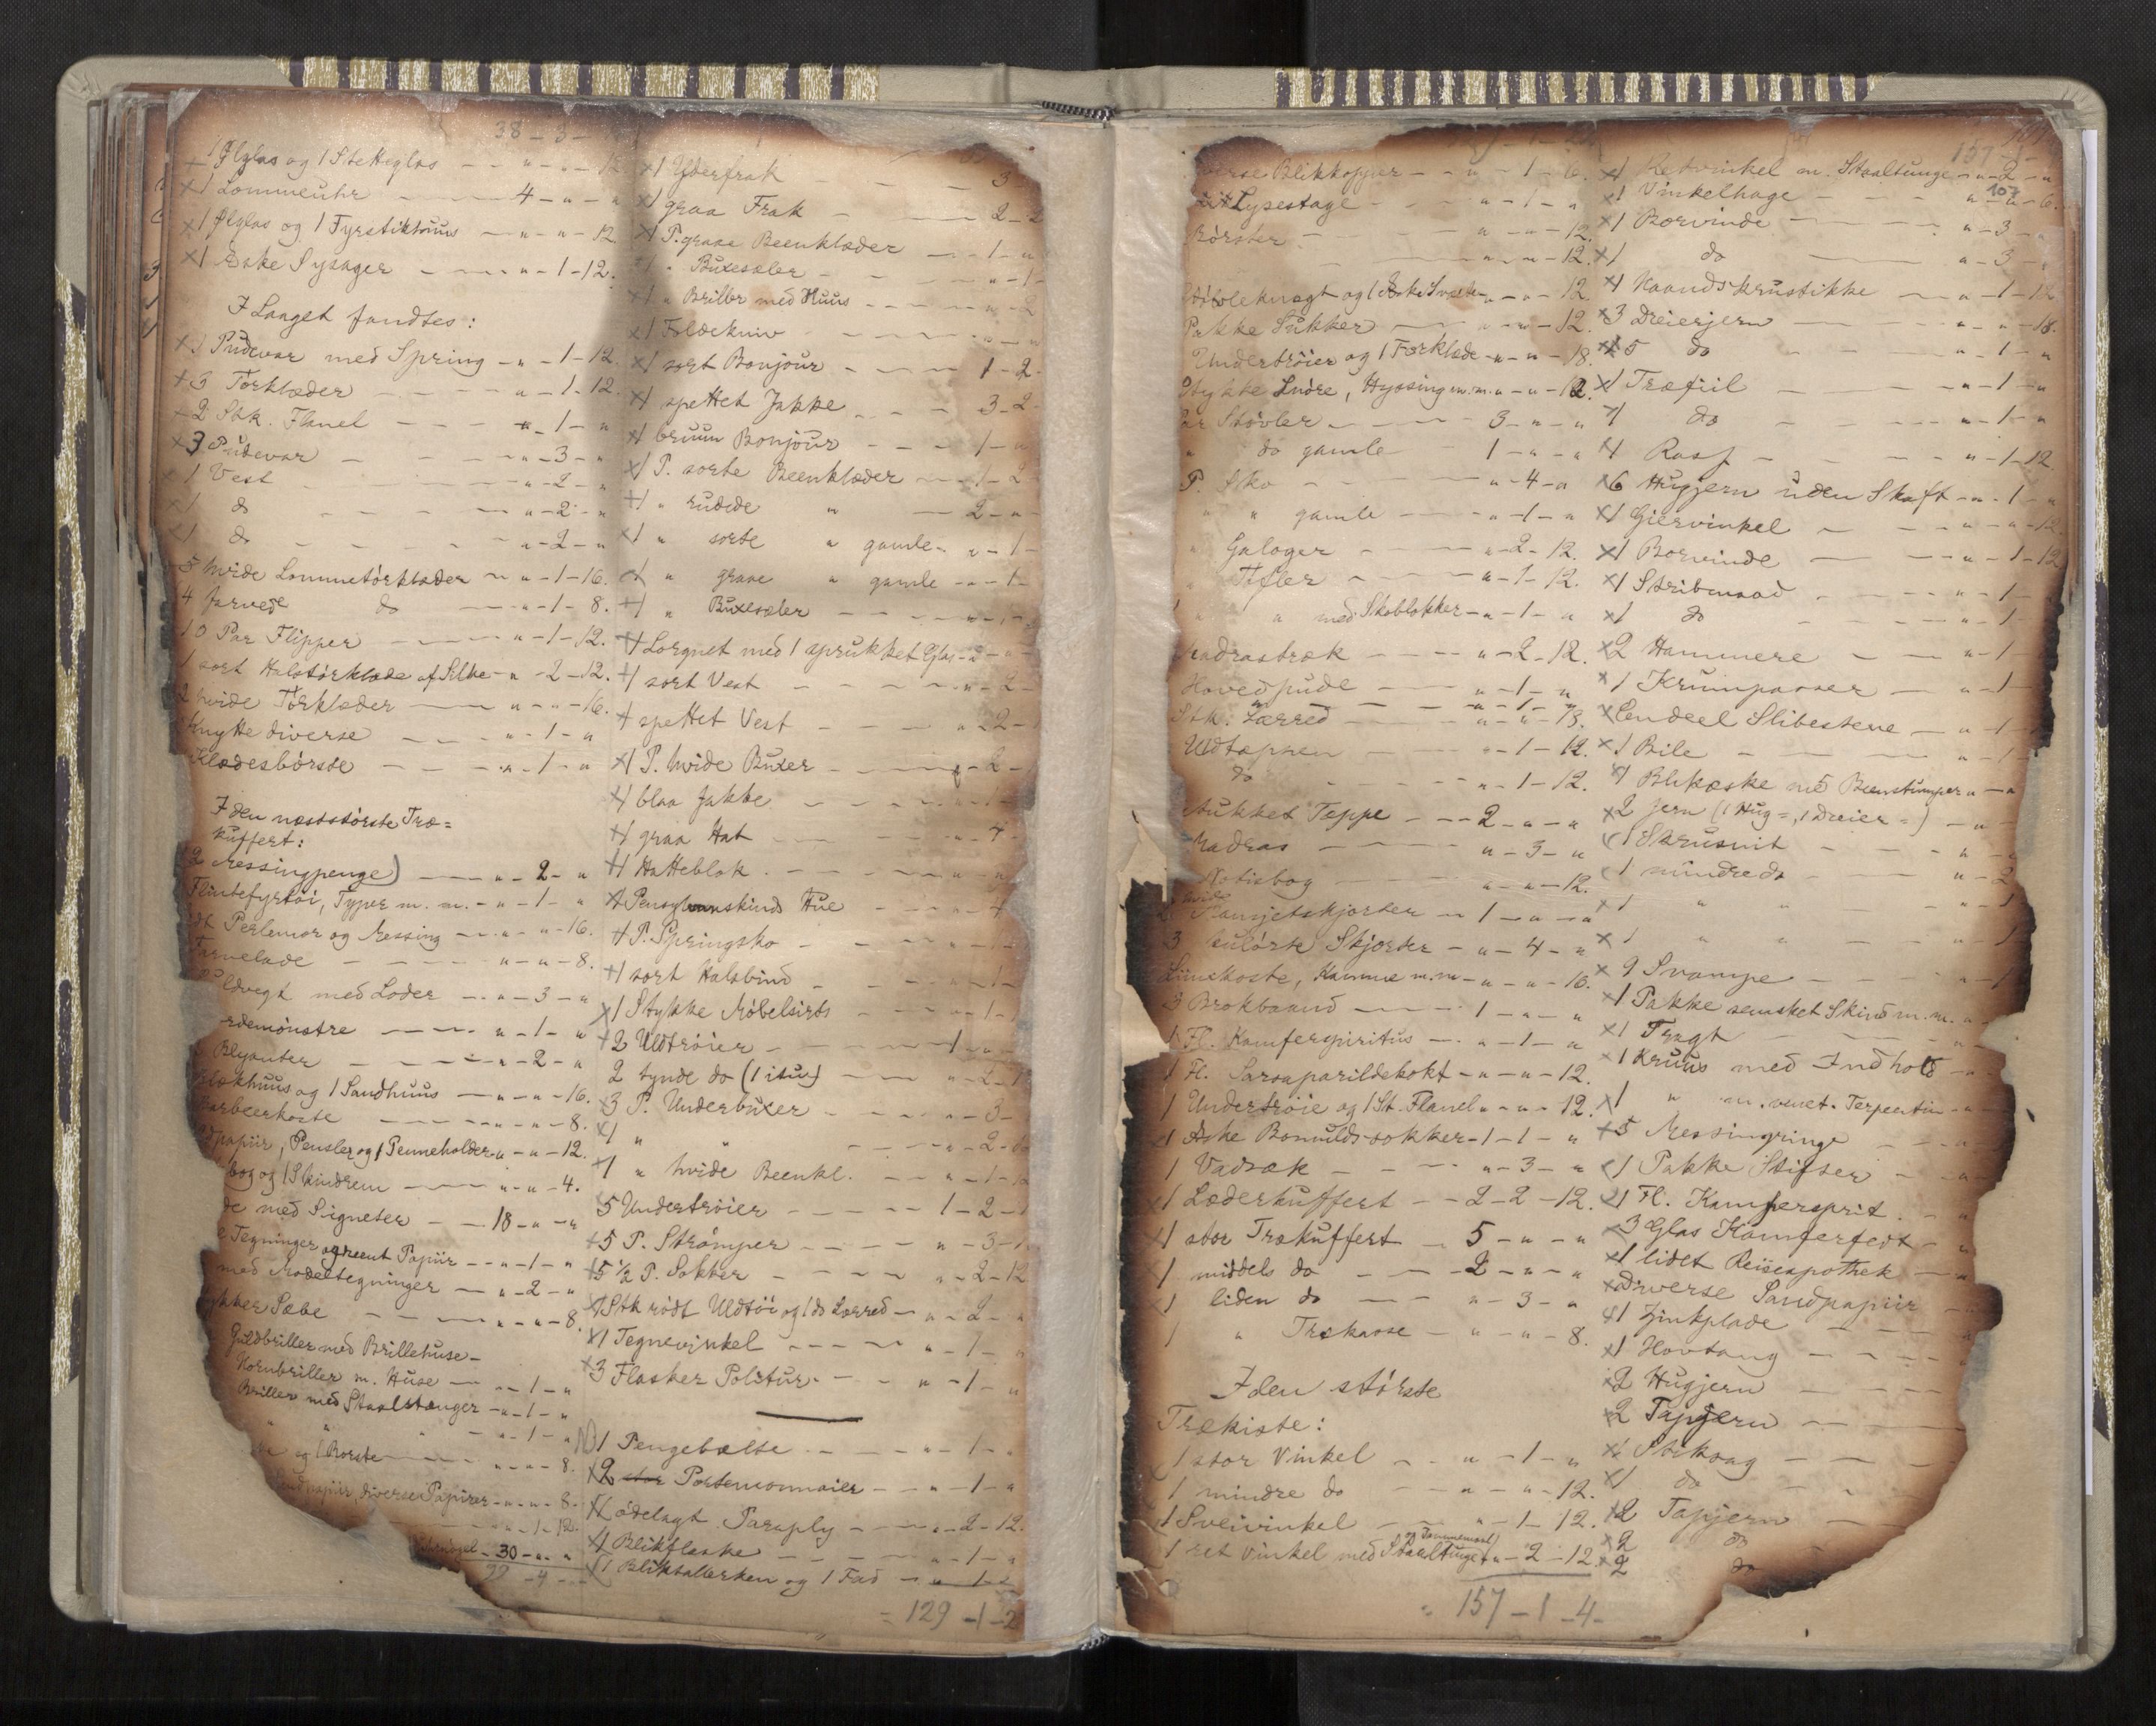 38 - 3 -
1 Ølglas og 1 Stetteglas - „ - „ - 12
×1 Lommeuhr - 4 - „ - „
×1 Ølglas og 1 Fyrstikhuus - „ - „ - 12.
×1 Æske Sysager - „ - 1 - 12.
I Laaget fandtes:
×1 Pudevar med Spring - „ - 1 - 12.
×3 Tørklæder - „ - 1 - 12.
×2 Stk. Flanel - „ - 1 - „
×3 Pudevar - „ - 3 - „
×1 Vest - „ - 2 - „
×1 do - „ - 2 - „
×1 do - „ - 2 - „
5 hvide Lommetørklæder - „ - 1 - 16.
4 farvede do - „ - 1 - 8.
10 Par Flipper - „ - 1 - 12.
1 sort Halstørklæde af Silke - „ - 2 - 12.
2 hvide Tørklæder - „ - „ - 16.
Knytte diverse - „ - 1 - „
Klædesbørste - „ - 1 - „
I den næststørste Træ=
kuffert:
2 Messingpenge) - „ - 2 - „
Flintefyrtøi, Typer m. m. - „ - 1 - „
dt Perlemor og Messing - „ - „ - 16.
Farvelade - „ - „ - 8.
uldvegt med Loder - „ - 3 - „
rdemønstre - „ - 1 - „
Blyanter - „ - 2 - „
Blækhuus og 1 Sandhuus - „ - „ - 16.
Barbeerkoste - „ - „ - 8.
dpapiir, Pensler og 1 Penneholder - „ - „ - 12.
bog og 1 Skindrem - „ - „ - 4.
de med Signeter - 18 - „ - „
e Tegninger og reent Papiir - „ - 1 - „
med Modeltegninger - „ - 2 - „
ykker Sæbe - „ - „ - 8.
Guldbriller med Brillehuse -
Hornbriller m. Huse - „ - 1 - „
Briller med Staalstænger - „ - 1 - „
„ „ „ - „ - 1 - „
og 1 Børste - „ - „ - 8.
Sandpapiir, diverse Papirer - „ - „ - 8.
- „ - 1 - 12.
- 30 - „ - „
×1 Yderfrak - 3 -
×1 graa Frak - 2 - 2
×1 P. graae Beenklæder - 1 - „
1 „ Buxesæler - „ - 1 -
×1 „ Briller med Huus - „ - 2
×1 Foldekniv - „ - „
×1 sort Bonjour - 1 - 2 -
×1 spettet Jakke - 3 - 2 -
×1 bruun Bonjour - 1 - „
×1 P. sorte Beenklæder - 1 - 2
×1 „ rudede „ - 2 - „
×1 „ sorte „ gamle - „ - 1 -
×1 „ graae „ gamle - „ - 1 -
×1 „ Buxesæler - „ - 1 -
×1 Lorgnet med 1 sprukket Glas - 2 - „
×1 sort Vest - „ - 2 -
× spettet Vest - „ - 2 -
×1 P. hvide Buxer - „ - 2 -
×1 blaa Jakke - „ - 1 -
×1 graa Hat - „ - 4 -
×1 Hatteblok - „ - „
×1 Pensylvanskinds Hue - „ - 4
×1 P. Springsko - „ - 1 -
×1 sort Halsbind - „ - 1 -
×1 Stykke Møbelsirts - „ - 1 -
×2 Uldtrøier - 1 - „
2 tynde do (1 itu) - „ - 2 - 1
×3 P. Underbuxer - „ - 3 -
×1 „ „ - „ - 2 -
×1 „ hvide Beenkl. - „ - 1 - 12
5 Undertrøier - 1 - 2 -
×5 P. Strømper - „ - 3 -
×5 1/2 P. Sokker - „ - 2 - 12
×1 Stk rødt Uldtøi og 1 do Lærred - „ - 2 - „
×1 Tegnevinkel - „ - 1 - „
×3 Flasker Politur - „ - 1 - „
1 Pengebælte - „ - 1 - „
×2 Portemonnaier - „ - 1 - „
×1 ødelagt Paraply - „ - 2 - 12.
×1 Blikflaske - „ - 1 - „
×1 Bliktallerken og 1 Fad - „ - 1 -
= 129 - 1 - 2
verse Blikkopper - „ - 1 - 6.
×× Lysestage - „ - 1 - „
Børster - „ - „ - 12.
- „ - „ - 12.
Støvleknægt og 1 Æske Sværte - „ - „ - 12.
Pakke Sukker - „ - „ - 12.
Undertrøier og 1 Forklæde - „ - „ - 18.
Stykke Snøre, Hyssing m. m. - „ - „ - 12.
Par Støvler - 3 - „ - „
„ do gamle - 1 - „ - „
P. Sko - „ - 4 - „
„ „ gamle - „ - 1 - „
„ Galoger - „ - 2 - 12.
„ Tøfler - „ - 1 - 12.
„ „ med Skoblokker - „ - 1 - „
Madrastræk - „ - 2 - 12.
Hovedpude - „ - 1 - „
- „ - 1 - „
Stk. Lærred - „ - „ - 18.
Uldtæppen - „ - 1 - 12.
do - „ - 1 - 12.
stukket Teppe - 2 - „ - „
Madras - „ - 3 - „
Notisbog - „ - „ - 12.
hvide
Mansjetskjorter - 1 - „ - „
3 kulørte Skjorter - „ - 4 - „
Liimkoste, Kamme m. m - „ - „ - 16.
3 Brokbaand - 1 - „ - „
1 Fl. Kamferspiritus - „ - 1 - „
1 Fl. Sarsaparildekokt - „ - „ - 12.
1 Undertrøie og 1 St. Flanel - „ - „ - 12.
×1 Æske Bomulds-sokker - 1 - 1 - „
1 Vadsæk - „ - 3 - „
×1 Læderkuffert - 2 - 2 - 12.
×1 stor Trækuffert - 5 - „ - „
1 middels do - 2 - „ - „
×1 liden do - „ - 3 - „
1 „ Trækasse - „ - „ - 8.
I den største
Trækiste:
1 stor Vinkel - „ - 1 - „
1 mindre do - „ - „ - 12.
1 Sveivinkel - „ - 1 - 12.
og Tommemaal
1 ret Vinkel med Staaltunge - „ - 2 - 12.
= 157 - 1 - 4 -
157 -
107
×1 Retvinkel m. Staaltunge - „ - 2 - „
×1 Vinkelhage - „ - „ - 6.
×1 Borvinde - „ - 3 - „
×1 do - „ - 3 - „
×1 Haandskrustikke - „ - 1 - 12
×3 Dreierjern - „ - „ - 18.
×5 do - „ - 1 - „
×1 Træfiil - „ - 1 - „
×1 do - „ - 1 - „
×1 Rasp - „ - 1 - 12
×6 Hugjern uden Skaft - „ - 1 - „
×1 Giervinkel - „ - „ - 12.
×1 Borvinde - „ - 1 - 12
×1 Stribmaad - „ - 1 -
×1 do - „ - 1 -
×2 Hammere - „ - 1 -
×1 Krumpasser - „ - 1 -
× Eendeel Slibestene - „ - 1
×1 Bile - „ - 1
×1 Blikæske med Beenstumper - „ - „
×2 Jern (1 Hug=, 1 Dreier=) - „ -
1 Skrusnit - „ - „
1 mindre do - „ - 2
×1 „ „ - „ - 1
×1 „ „ - „ - 1
×9 Svampe - „ - 1
×1 Pakke semsket Skind m. m. - „
×1 Tragt - „ -
×1 Kruus med Indhold - „
×1 „ m. venet. Terpentin - „
×5 Messingringe - „
×1 Pakke Stifter - „
×1 Fl. Kampersprit - „
×3 Glas Kamferfedt - „
×1 lidet Reiseapothek - „
× Diverse Sandpapiir
×1 Zinkplade
×1 Hovtang
×2 Hugjern
×2 Tapjern
×1 Stiksag
×1 do
×2 Tapjern
×2 do
×2 do